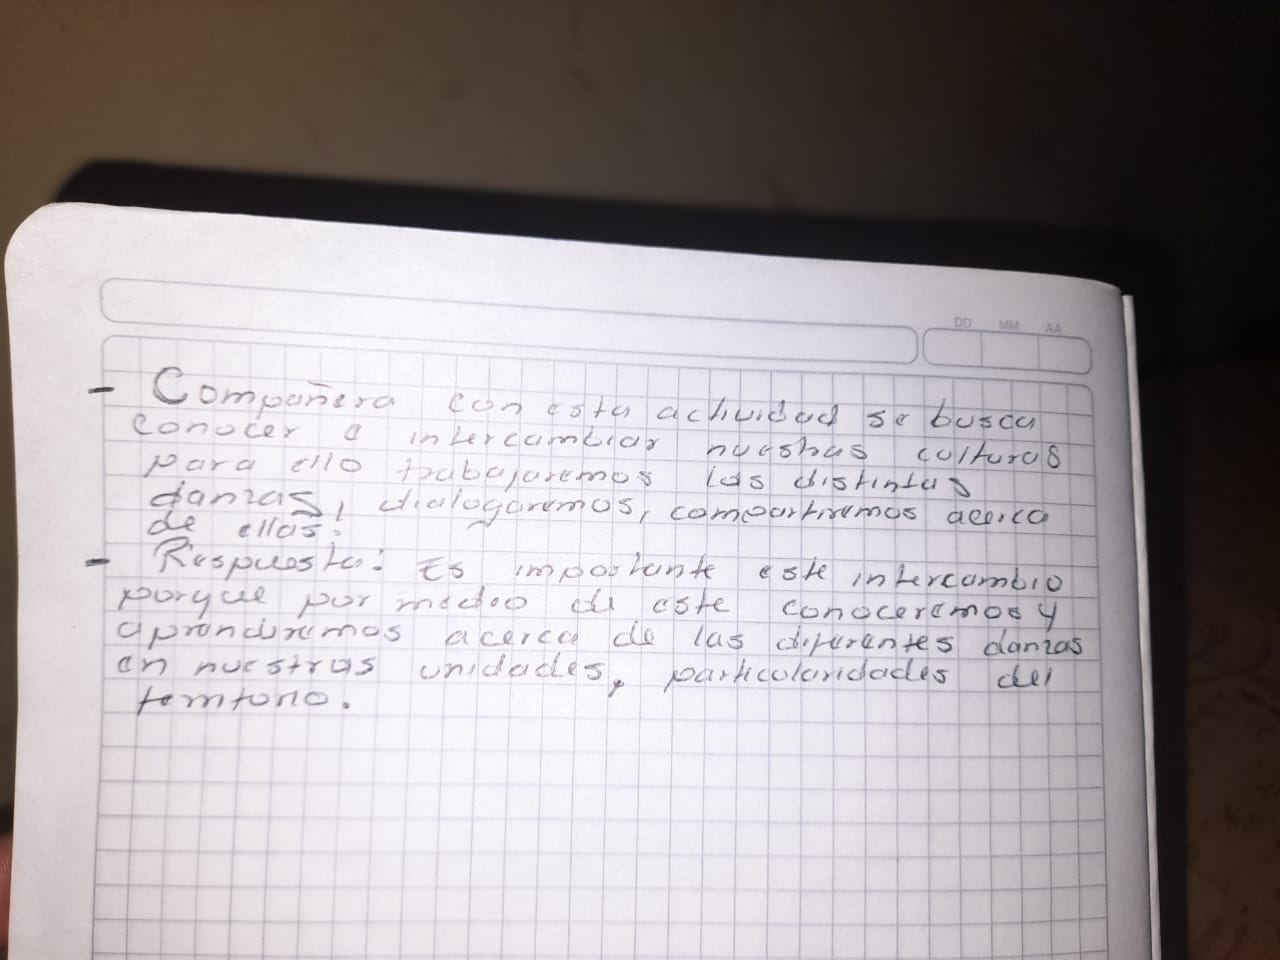 DD MM AA
- Compañera con esta actividad se busca
conocer e intercambiar nuestras culturas
para ello trabajaremos las distintas
danzas, dialogaremos, compartiremos acerca
de ellas.
- Respuesta: Es importante este intercambio
porque por medio de este conoceremos y
aprendiremos acerca de las diferentes danzas
en nuestras unidades, particularidades del
territorio.